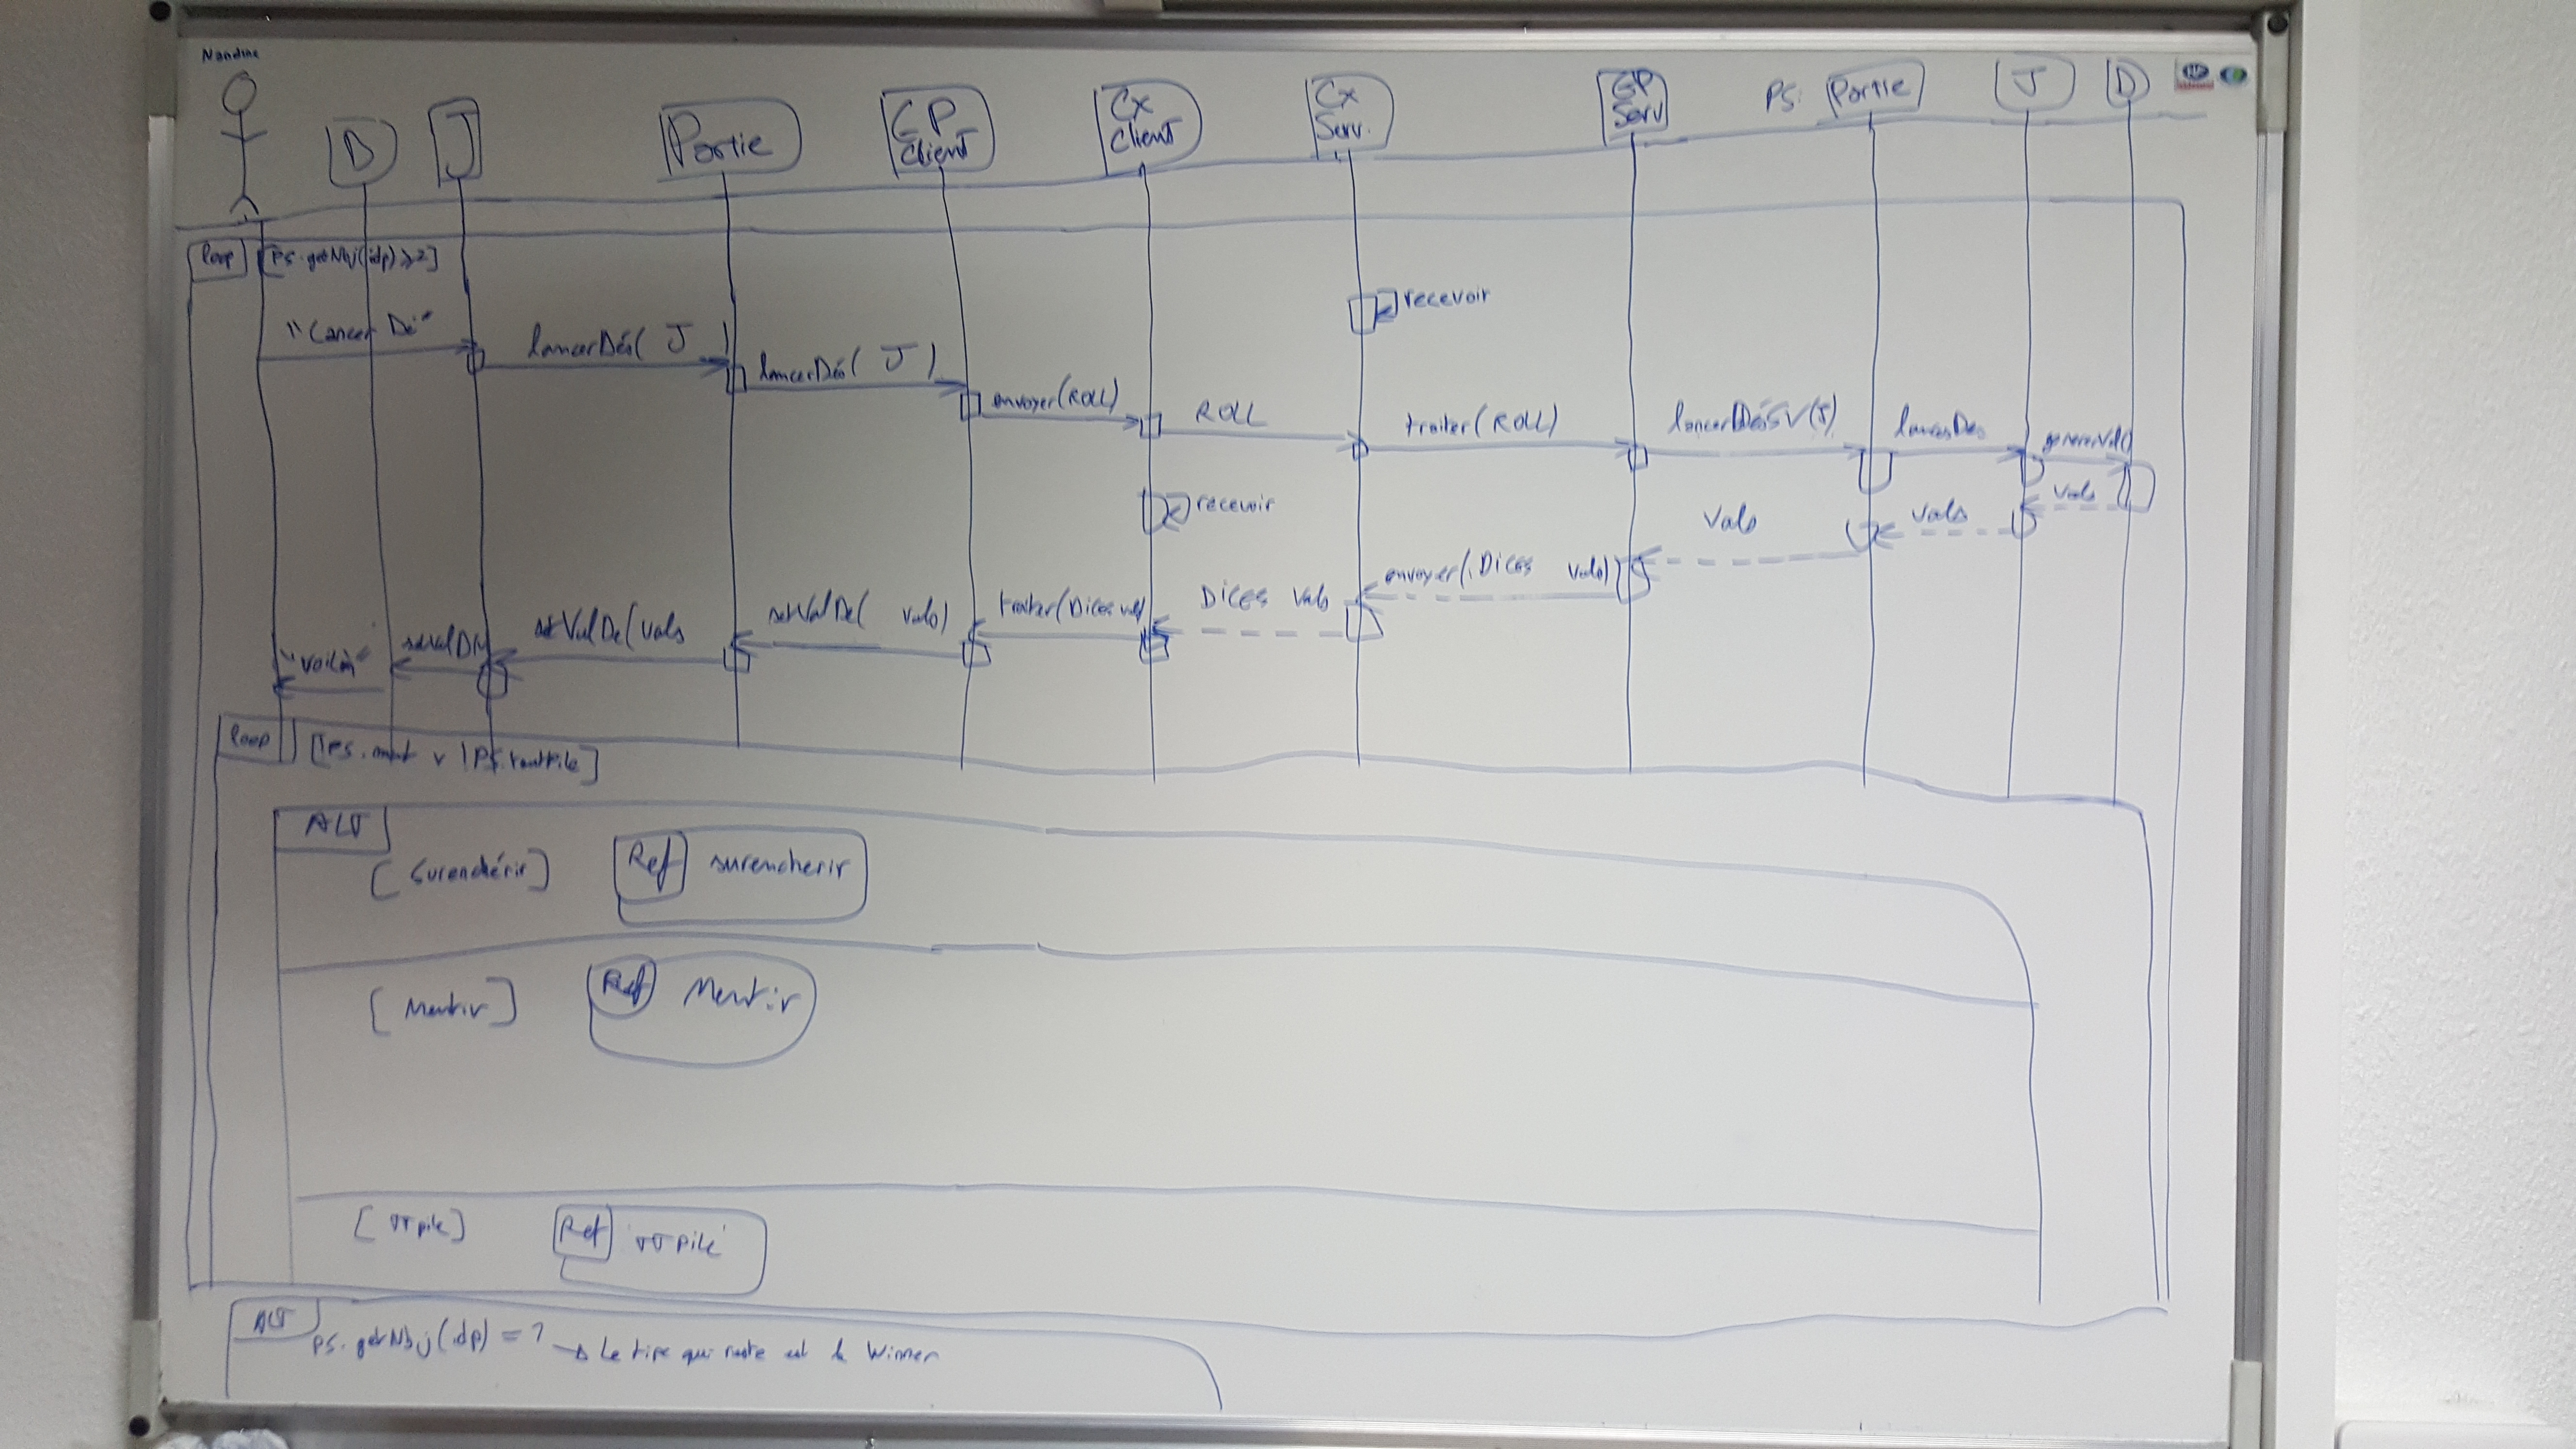 Nandine
D
J
Partie
GP Client
Cx Client
Cx Serv.
GP Serv
PS: Partie
J
D
loop [PS.getNbj(idp) ≥ 2]
recevoir
"Lancer Dé"
lancerDés( J )
lancerDés( J )
envoyer(ROLL)
ROLL
traiter(ROLL)
lancerDésSV(J)
lancerDes
genererVal()
recevoir
vals
vals
Vals
envoyer(Dices vals)
Dices vals
traiter(Dices val)
setValDe( vals)
setValDe(vals
setValDe
"voilà"
loop [!PS.ment v !PS.toutPile]
ALT
[Surenchérir] Ref surencherir
[Mentir] Ref Mentir
[TTpile] Ref 'TTPile'
ALT
PS.getNbj(idp) = 1 → Le tipe qui reste est le Winner